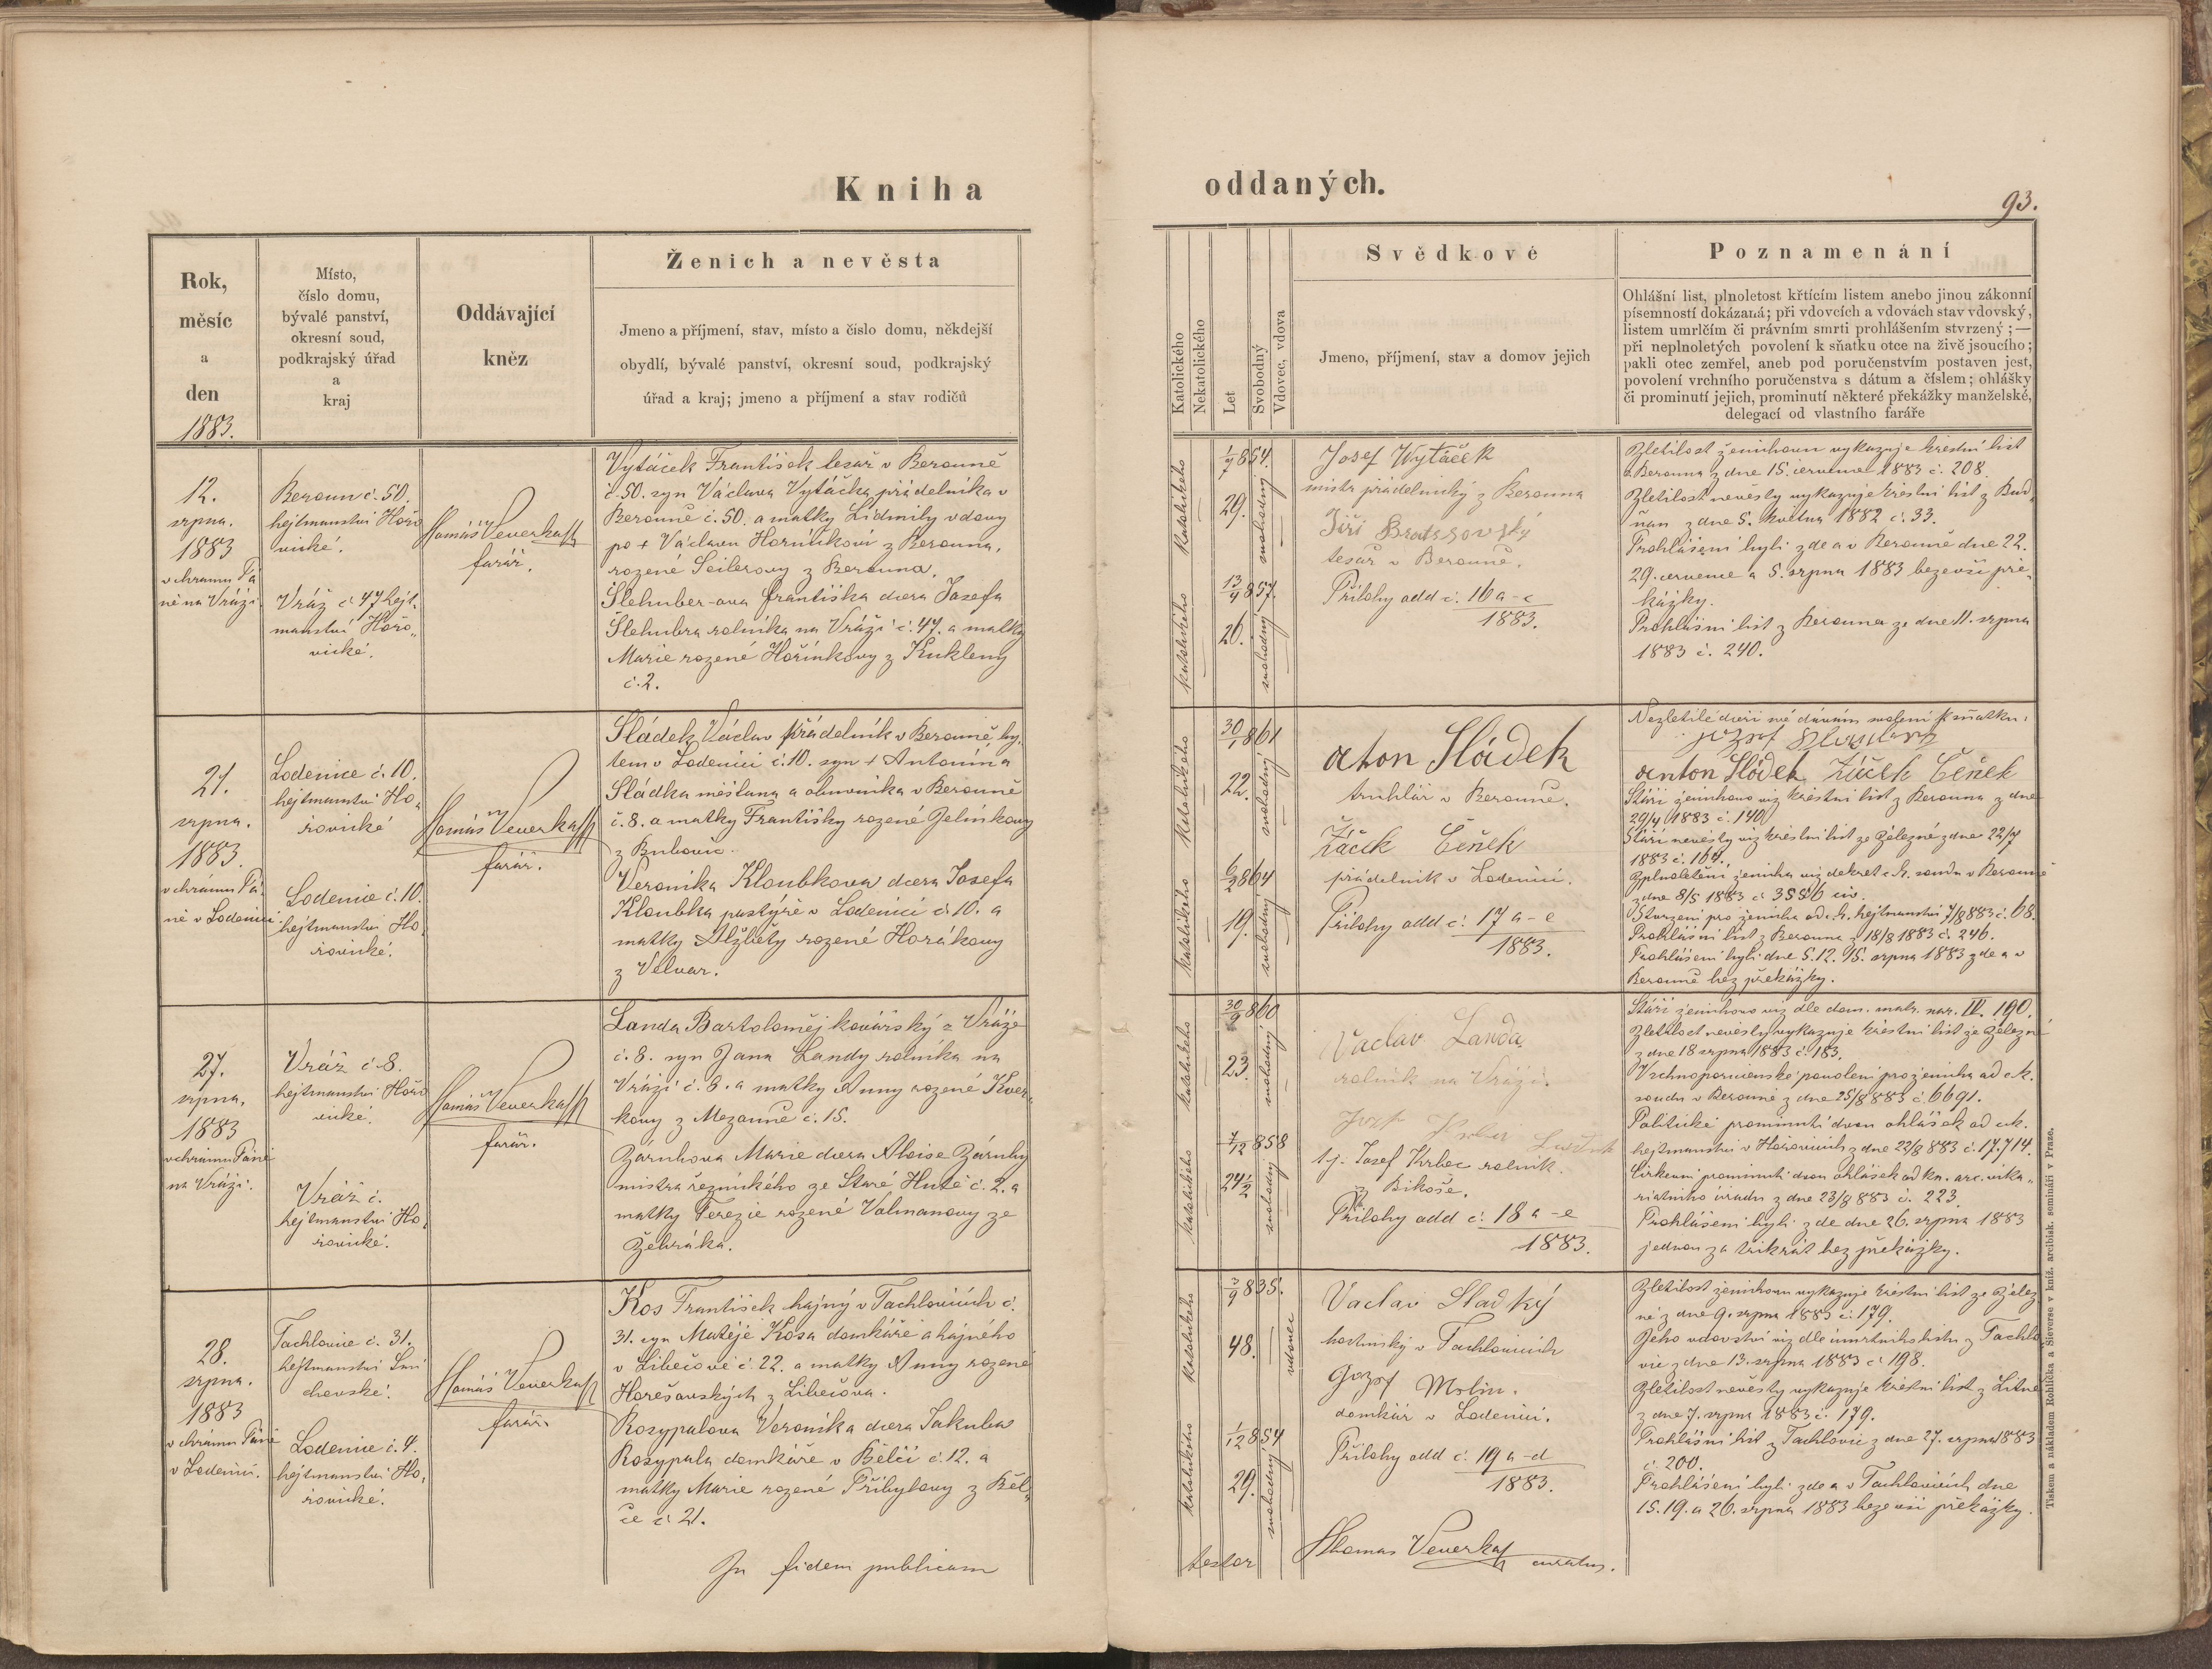 Kniha oddaných.
93.
Rok,
měsíc
a
den
1883.
Místo,
číslo domu,
bývalé panství,
okresní soud,
podkrajský úřad
a
kraj
Oddávající
kněz
Ženich a nevěsta
Jmeno a příjmení, stav, místo a číslo domu, někdejší
obydlí, bývalé panství, okresní soud, podkrajský
úřad a kraj; jmeno a příjmení a stav rodičů
Katolického
Nekatolického
Let
Svobodný
Vdovec, vdova
Svědkové
Jmeno, příjmení, stav a domov jejich
Poznamenání
Ohlášní list, plnoletost křtícím listem anebo jinou zákonní
písemností dokázaná; při vdovcích a vdovách stav vdovský,
listem umrlčím či právním smrti prohlášením stvrzený; —
při neplnoletých povolení k sňatku otce na živě jsoucího;
pakli otec zemřel, aneb pod poručenstvím postaven jest,
povolení vrchního poručenstva s dátum a číslem; ohlášky
či prominutí jejich, prominutí některé překážky manželské,
delegací od vlastního faráře
12.
srpna.
1883
v chrámu Pá
ně na Vráži
Beroun č. 50.
hejtmanství Hořo
vické.
Vráž č. 47 hejt.
manství Hořo„
vické.
Tomáš Veverka
farář.
Vytáček František tesař v Berouně
č. 50. syn Václava Vytáčka přádelníka v
Berouně č. 50. a matky Lidmily vdovy
po + Václavu Horníkovi z Berouna,
rozené Seilerovy z Berouna.
Šlehuber-ova Františka dcera Josefa
Šlehubra rolníka na Vráži č. 47. a matky
Marie rozené Hořínkovy z Kukleny
č. 2.
katolického
1/7 854.
29.
svobodný
katolického
13/4 857.
26.
svobodný
Josef Wytáček
mistr přádelnický z Berouna
Jiří
tesař v Berouně.
Přílohy add č. 16 a-c
1883.
Zletilost ženichovu vykazuje křestní list
z Berouna z dne 15. července 1883 č. 208.
Zletilost nevěsty vykazuje křestní list z Bud„
ňan z dne 5. května 1882 č. 33.
Prohlášeni byli zde a v Berouně dne 22.
29. července a 5. srpna 1883 beze vší pře„
kážky.
Prohlášní list z Berouna ze dne 11. srpna
1883 č. 240.
21.
srpna.
1883.
v chrámu Pá„
ně v Lodenici
Lodenice č. 10.
hejtmanství Ho„
řovické
Lodenice č. 10.
hejtmanství Ho„
řovické.
Tomáš Veverka
farář.
Sládek Václav přádelník v Berouně by„
tem v Lodenici č. 10. syn + Antonína
Sládka měšťana a obuvníka v Berouně
č. 8. a matky Františky rozené Jelínkovy
z Bubovic.
Veronika Kloubkova dcera Josefa
Kloubka pastýře v Lodenici č. 10. a
matky Alžběty rozené Horákovy
z Velvar.
katolického
30/1 861
22.
svobodný
katolického
6/2 864
19.
svobodný
Anton Sládek
truhlář v Berouně.
Žáček Čeněk
přádelník v Lodenici.
Přílohy add č. 17 a-e
1883.
Nezletilé dceři mé dávám svolení k sňatku.
Anton Sládek Žáček Čeněk
Stáří ženichovo viz křestní list z Berouna z dne
29/4 1883 č. 140
Stáří nevěsty viz křestní list ze Železné z dne 22/7
1883 č. 164.
Zplnoletění ženicha viz dekret c. k. soudu v Berouně
z dne 8/5 1883 č. 3556 civ.
Stvrzení pro ženicha od c. k. hejtmanství 7/8 883 č. 68.
Prohlášní list z Berouna z 18/8 1883 č. 246.
Prohlášeni byli dne 5. 12. 15. srpna 1883 zde a v
Berouně bez překážky.
27.
srpna,
1883
v chrámu Páně
na Vráži.
Vráž č. 8.
hejtmanství Hořo
vické.
Vráž č.
hejtmanství Ho„
řovické.
Tomáš Veverka
farář.
Landa Bartoloměj kovářský z Vráže
č. 8. syn Jana Landy rolníka na
Vráži č. 8. a matky Anny rozené Kver„
kovy z Mezouně č. 15.
Zárubova Marie dcera Aloise Záruby
mistra řeznického ze Staré Hutě č. 2. a
matky Terezie rozené Valmanovy ze
Žebráka.
katolického
30/9 860
23.
svobodný
katolického
7/12 858
24 1/2
svobodný
Vaclav Landa
rolník na Vráži.
t. j. Josef Krbec rolník
z Bikoše.
Přílohy add č. 18 a-e
1883.
Stáří ženichovo viz dle dom. matr. nar. IV. 190.
Zletilost nevěsty vykazuje křestní list ze Železné
z dne 18 srpna 1883 č. 183.
Vrchnoporučenské povolení pro ženicha od c. k.
soudu v Berouně z dne 25/8 883 č. 6691.
Politické prominutí dvou ohlášek od c. k.
hejtmanství v Hořovicích z dne 22/8 883 č. 17.714.
Církevní prominutí dvou ohlášek od kn. arc. vika„
riatního úřadu z dne 23/8 883 č. 223.
Prohlášeni byli zde dne 26. srpna 1883
jednou za třikrát bez překážky.
28.
srpna.
1883
v chrámu Páně
v Lodenici.
Tachlovice č. 31.
hejtmanství Smí
chovské.
Lodenice č. 4.
hejtmanství Ho„
řovické.
Tomáš Veverka
farář.
Kos František hajný v Tachlovicích č.
31. syn Matěje Kosa domkáře a hajného
v Libečově č. 22. a matky Anny rozené
Horešovských z Libečova.
Rosypalova Veronika dcera Jakuba
Rosypala domkáře v Bělči č. 12. a
matky Marie rozené Přibylovy z Běl„
če č. 21.
katolického
3/9 835.
48.
vdovec
katolického
1/12 854
29.
svobodný
Vaclav Sladký
hostinský v Tachlovicích
Jozef Molin.
domkář v Lodenici.
Přílohy add č. 19 a-d
1883.
Zletilost ženichovu vykazuje křestní list ze Želez
né z dne 9. srpna 1883 č. 179.
Jeho vdovství viz dle úmrtního listu z Tachlo
vic z dne 13. srpna 1883 č. 198.
Zletilost nevěsty vykazuje křestní list z Litně
z dne 7. srpna 1883 č. 179.
Prohlášní list z Tachlovic z dne 27. srpna 1883
č. 200.
Prohlášeni byli zde a v Tachlovicích dne
15. 19. a 26. srpna 1883 beze vší překážky.
In fidem publicam
testor Thomas Veverka curatus.
Tiskem a nákladem Rohlíčka a Sieverse v kníž. arcibisk. semináři v Praze.